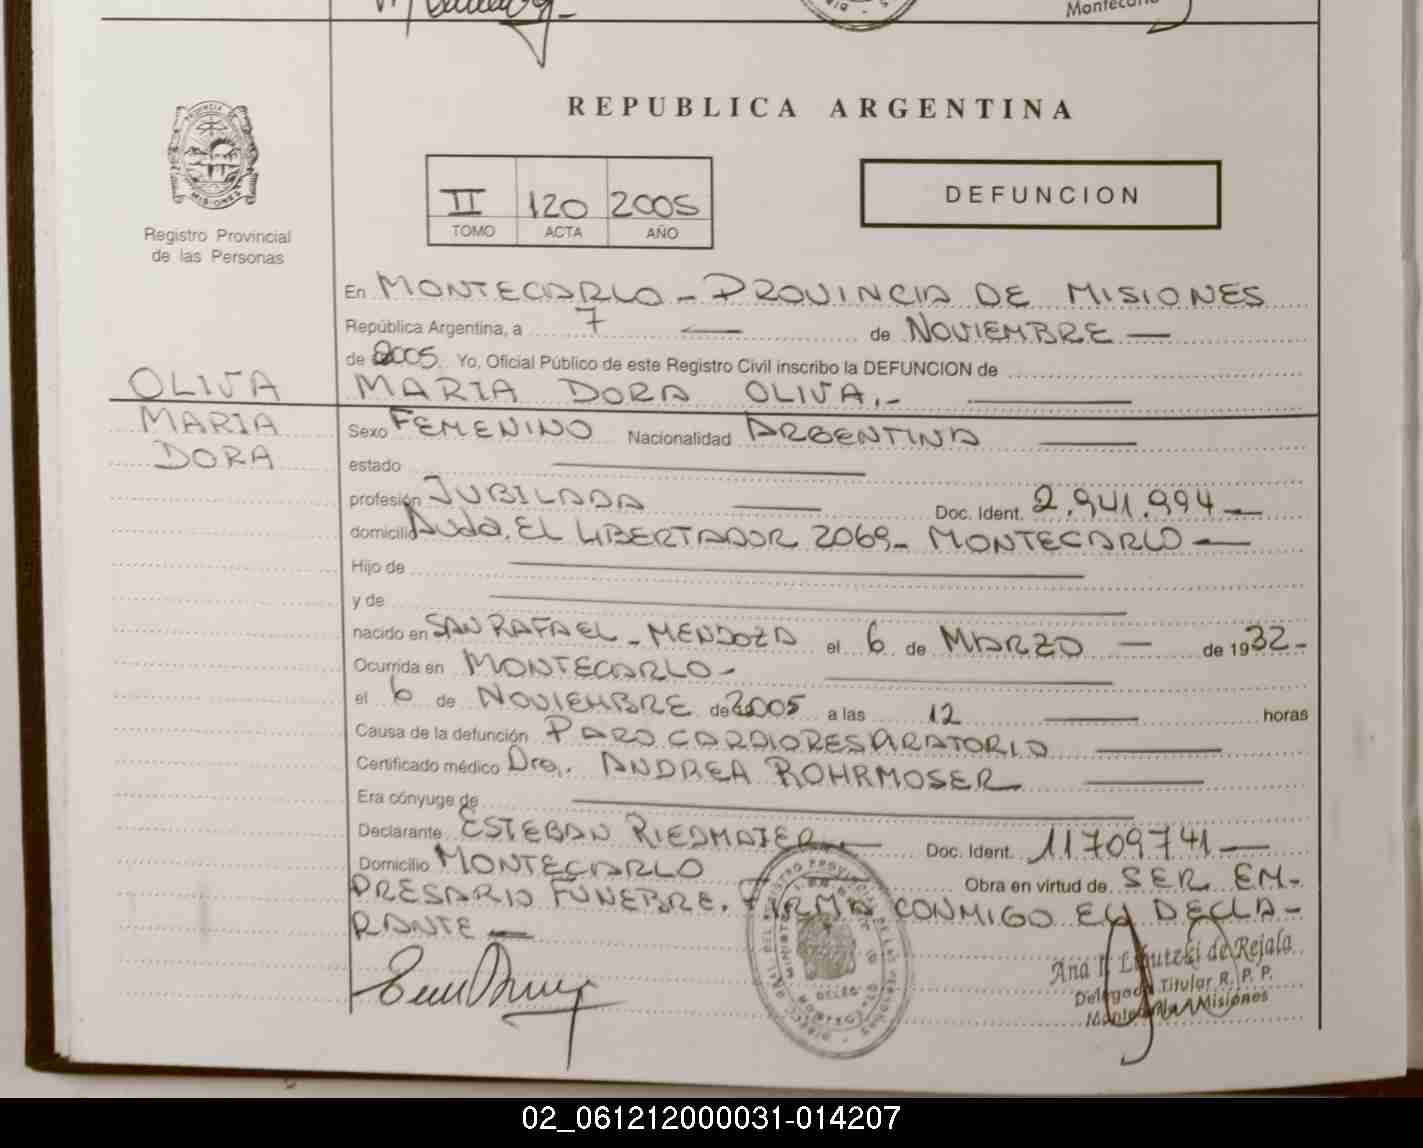 Montecarlo
REPUBLICA ARGENTINA
II 120 2005
TOMO ACTA AÑO
DEFUNCION
Registro Provincial
de las Personas
En MONTECARLO - PROVINCIA DE MISIONES
República Argentina, a 7 — de NOVIEMBRE —
de 2005 Yo, Oficial Público de este Registro Civil inscribo la DEFUNCION de
OLIVA MARIA DORA OLIVA.-
MARIA Sexo FEMENINO Nacionalidad ARGENTINA
DORA estado
profesión JUBILADA Doc. Ident. 2.941.994 —
domicilio Avda. EL LIBERTADOR 2069 - MONTECARLO —
Hijo de
y de
nacido en SAN RAFAEL - MENDOZA el 6 de MARZO — de 1932-
Ocurrida en MONTECARLO -
el 6 de NOVIEMBRE de 2005 a las 12 horas
Causa de la defunción PARO CARDIORESPIRATORIO
Certificado médico Dra. ANDREA ROHRMOSER
Era cónyuge de
Declarante ESTEBAN RIEDMAIER Doc. Ident. 11709741 —
Domicilio MONTECARLO Obra en virtud de SER EM-
PRESARIO FUNEBRE. FIRMA CONMIGO EL DECLA-
RANTE —
de Rejala
Delegada Titular R. P. P.
Montecarlo Misiones
02_061212000031-014207